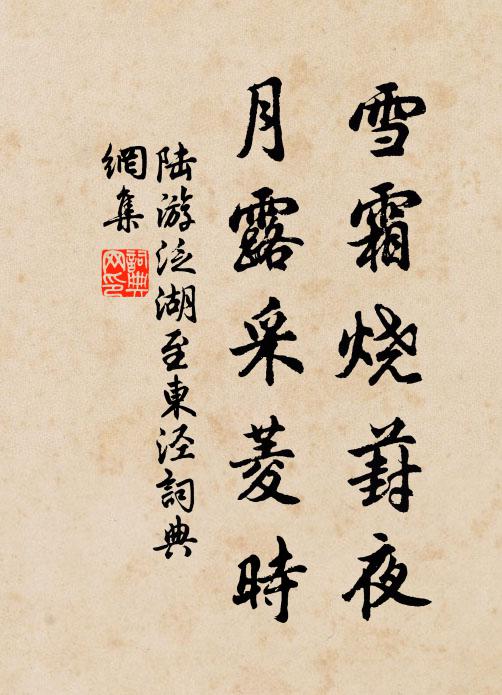 雪霜烧葑夜
月露采菱時
陆游泛湖至東泾詞典
網集
詞典
网印